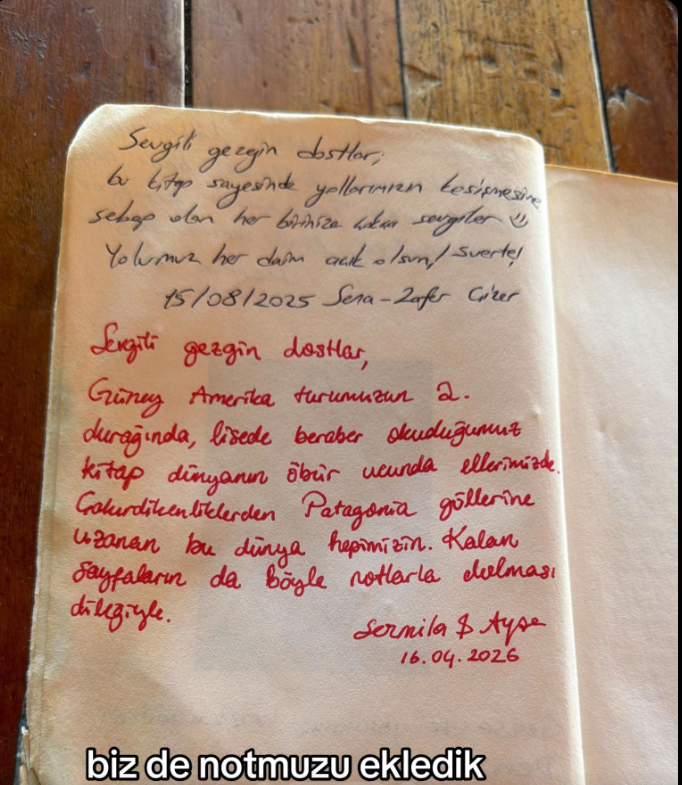 Sevgili gezgin dostlar,
bu kitap sayesinde yollarımızın kesişmesine
sebep olan her birinize sevgiler
Yolumuz her daim açık olsun! Suerte!
15/08/2025 Sena-Zafer
Sevgili gezgin dostlar,
Güney Amerika turumuzun 2.
durağında, lisede beraber okuduğumuz
kitap dünyanın öbür ucunda ellerimizde.
Çakırdikenliklerden Patagonia göllerine
uzanan bu dünya hepimizin. Kalan
sayfaların da böyle notlarla dolması
dileğiyle.
& Ayşe
16.04.2026
biz de notmuzu ekledik